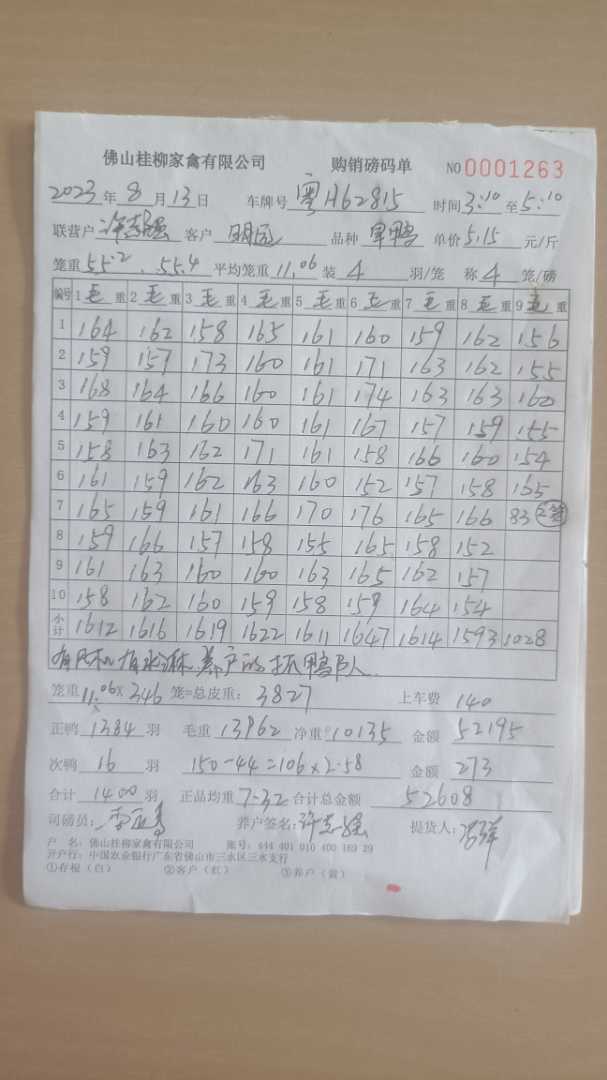 佛山桂柳家禽有限公司 购销磅码单 NO 0001263
2023年8月13日 车牌号 粤H62815 时间3:10至5:10
联营户 许志强 客户 品种 单鸭 单价5.15元/斤
笼重55.2、55.4 平均笼重11.06 装4羽/笼 称4笼/磅
编号 1毛重 2毛重 3毛重 4毛重 5毛重 6毛重 7毛重 8毛重 9毛重
1 164 162 158 165 161 160 159 162 156
2 159 157 173 160 161 171 163 162 155
3 168 164 166 160 161 174 163 163 160
4 159 161 160 160 161 167 157 159 155
5 158 163 162 171 161 158 166 160 154
6 161 159 162 163 160 152 157 158 165
7 165 159 161 166 170 176 165 166 83 2笼
8 159 166 157 158 155 165 158 152
9 161 163 160 160 163 165 162 157
10 158 162 160 159 158 159 164 154
小计 1612 1616 1619 1622 1611 1647 1614 1593 1028
有风机有水淋 养户的抓鸭队人
笼重11.06×346笼=总皮重:3827 上车费140
正鸭1384羽 毛重13962 净重10135 金额52195
次鸭16羽 150-44=106×2.58 金额273
合计1400羽 正品均重7.32 合计总金额52608
司磅员: 养户签名:许志强 提货人:
户 名:佛山桂柳家禽有限公司 账号:444 401 010 400 169 29
开户行:中国农业银行广东省佛山市三水区三水支行
①存根(白) ②客户(红) ③养户(黄)